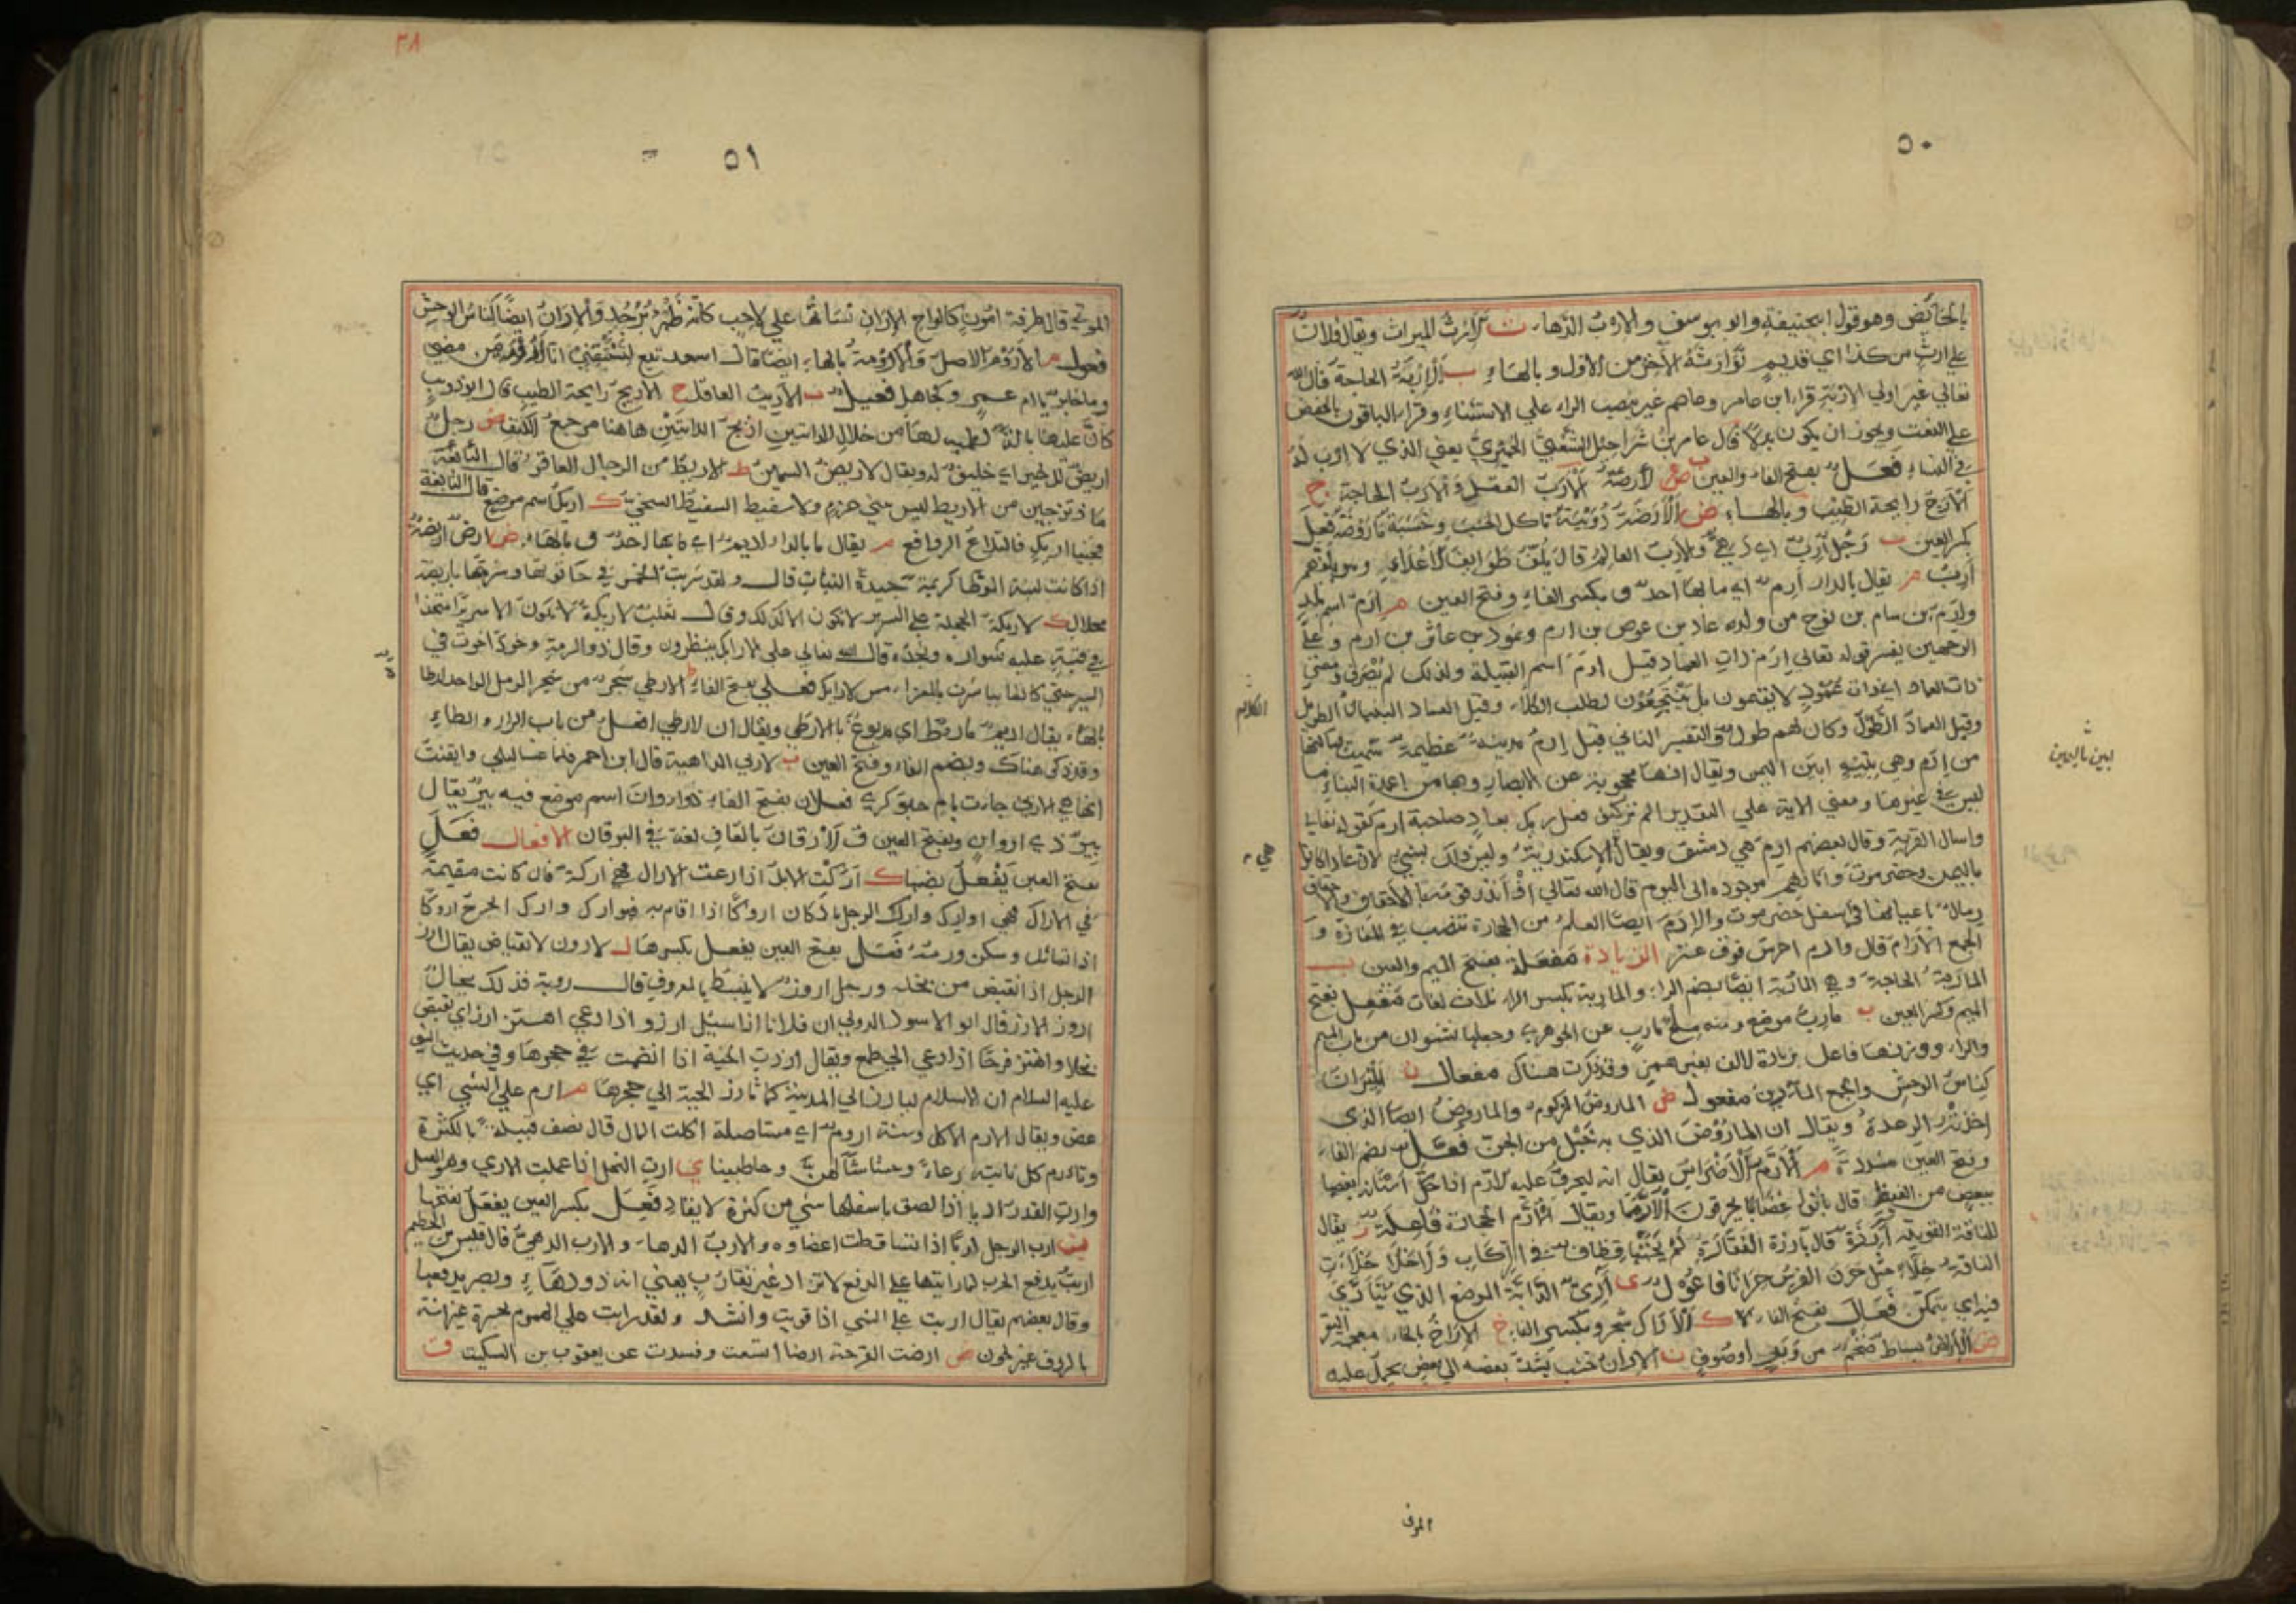 ٥٠
بالخائض وهو قول ابيحنيفة وابو يوسف والارب الدهاء ث الارث الميراث ويقال فلان
علي ارث من كذا اي قديم توارثه الآخر من الاول وبالهاء ب الاربة الحاجة قال الله
تعالي غير اولي الاربة قرا ابن عامر وعاصم غير بنصب الراء علي الاستثناء وقرا الباقون بالخفض
علي النعت ويجوز ان يكون بدلا قال عامر بن شراحيل الشعبي الحميري يعني الذي لا ارب له
في النساء فعل بفتح الفاء والعين ب الارب العقل والارب الحاجة ج
الارج رايحة الطيب وبالهاء ض الارضة دويبة تاكل الخشب وخشبة ماروضة فعل
بكسر العين ب رجل ارب اي ذهي والارب العالم قال يلف طوايف الاعداء وهو بلفهم
ارب م يقال بالدار ارم اي ما بها احد و بكسر الفاء وفتح العين م ارم اسم بلد
وارم بن سام بن نوح من ولده عاد بن عوص بن ارم وثمود بن عاثر بن ارم وعلي
الوجهين يفسر قوله تعالي ارم ذات العماد قيل ارم اسم القبيلة ولذلك لم يصرف ومعني
ذات العماد اي ذات عمود لا يقيمون بل ينتجعون لطلب الكلاء وقيل العماد البنيان الطويل
وقيل العماد الطول وكان لهم طول والتفسير الثاني قيل ارم مدينة عظيمة
من ارم وهي بتيه ابين اليمن ويقال انها محجوبة عن الابصار وبها من اعمدة البناء ما
ليس في غيرها ومعني الاية علي التقدير الم تر كيف فعل ربك بعاد صاحبة ارم كقوله تعالي
واسال القرية وقال بعضهم ارم هي دمشق ويقال الاسكندرية وليس ذلك بشيء لان عادا كانوا
باليمن وحضرموت وآثارهم موجوده الي اليوم قال الله تعالي اذ انذر قومه بالاحقاف والاحقاف
رمال باعيانها في اسفل حضرموت والارم ايضا العلم من الحجارة تنصب في المفازة و
الجمع الآرام قال وارم اخرس فوق عنز الزيادة مفعلة بفتح الميم والعين ب
الماربة الحاجة وهي الماربة ايضا بضم الراء والماربة بكسر الراء ثلاث لغات مفعل بفتح
الميم وكسر العين ب مارب موضع ومنه ملح مارب عن الجوهري وجعلها نشوان من باب الميم
والراء ووزنها فاعل بزيادة الالف بغير همز وقد ذكرت هناك مفعال ن الميران
كناس الوحش والجمع المآرين مفعول ض الماروض المزكوم والماروض ايضا الذي
اخذته الرعدة ويقال ان الماروض الذي به خبل من الجن فعل بضم الفاء
وفتح العين مشددة م الارم الاضراس يقال انه ليحرق عليه الارم اذا حك اسنانه بعضها
ببعض من الغيظ قال باتوا غضابا يحرقون الارما ويقال الارم الحجارة فاعلة ز يقال
للناقة القوية آرزة قال بآرزة الفقارة لم يخنها قطاف في الركاب ولا خلاء خلات
الناقة خلاء مثل حرن الفرس حرانا فاعول ي آري الدابة الموضع الذي تتاري
فيه اي تتمكن فعال بفتح الفاء ك الاراك شجر وبكسر الفاء خ الاراخ بالخاء معجمة البقر
ض الاراض بساط ضخم من وبر او صوف ن الاران خشب يشد بعضه الي بعض يحمل عليه
الكلام
هي
ابين باليمن
الموتي
٣٨
٥١
الموتي قال طرفة امون كالواح الاران نساتها علي لاحب كانه ظهر برجد والاران ايضا كناس الوحش
فعول م الاروم الاصل والارومة بالهاء ايضا قال اسعد تبع
فعيل ب الاريب العاقل ج الاريج رايحة الطيب قال ابو ذويب
كان عليها بالة لطمية لها من خلال الدايتين اريج الدايتين هاهنا مرجع الكتف ض رجل
اريض للخير اي خليق له ويقال الاريض السمين ط الاريط من الرجال العاقر قال
ماذا ترجين من الاريط ليس بذي حزم ولا سفيط السفيط السخي ك اريك اسم موضع قال النابغة
فجنبا اريك فالتلاع الدوافع م يقال ما بالدار اريم اي ما بها احد و بالهاء ض ارض اريضة
اذا كانت لينة الموطا كريمة جيدة النبات قال ولقد شربت الخمر في حانوتها وشربتها باريضة
محلال ك الاريكة الحجلة علي السرير لا تكون الا كذلك وقال ثعلب الاريكة لا تكون الا سريرا متخذا
في قبة عليه شواره ونجده قال الله تعالي علي الارايك ينظرون وقال ذو الرمة
فعلي بفتح الفاء ط الارطي شجر من شجر الرمل الواحد ارطا
بالهاء يقال اديم ماروط اي مدبوغ بالارطي ويقال ان الارطي افعل من باب الراء والطاء
وقد ذكر هناك وبضم الفاء وفتح العين ب الاربي الداهية قال ابن احمر فلما غسا ليلي وايقنت
انها هي الاربي جاءت بام حبوكري فعلان بفتح الفاء ذو اروان اسم موضع فيه بير يقال
بير ذي اروان وبفتح العين ق الارقان بالقاف لغة في اليرقان الافعال فعل
بفتح العين يفعل بضمها ك اركت الابل اذا رعت الاراك فهي اركة فان كانت مقيمة
في الاراك فهي اوارك وارك الرجل بالمكان اروكا اذا اقام به فهو ارك وارك الجرح اروكا
اذا تماثل وسكن ورمه فعل بفتح العين يفعل بكسرها ز الاروز الانقباض يقال ارز
الرجل اذا انقبض من بخله ورجل اروز لا ينبسط بالمعروف قال روبة فذلك بخال
اروز الارز قال ابو الاسود الدولي ان فلانا اذا سيل ارز واذا دعي اهتز ارز اي تقبض
بخلا واهتز فرحا اذا دعي الي طعم ويقال ارزت الحية اذا انضمت في جحرها وفي حديث النبي
عليه السلام ان الاسلام ليارز الي المدينة كما تارز الحية الي جحرها م ارم علي الشي اي
عض ويقال الارم الاكل وسنة اروم اي مستاصلة اكلت المال قال نصف قبيلة بالكثرة
وتارم كل نابتة رعاء وحشاشا لهن وحاطبينا ي ارت النحل اذا عملت الاري وهو العسل
وارت القدر اريا اذا لصق باسفلها شي من كثرة الايقاد فعل بكسر العين يفعل بفتحها
ب ارب الرجل اربا اذا تساقطت اعضاوه والارب الدهاء والارب الدهي قال قيس بن الخطيم
اربت بدفع الحرب لما رايتها علي الدفع لا تزداد غير تقارب يعني انه ذو دهاء وبصر بدفعها
وقال بعضهم يقال اربت علي الشي اذا قويت وانشد ولقد اربت علي الهموم بجسرة عيرانة
بالردف غير لجون ض ارضت القرحة ارضا اتسعت وفسدت عن يعقوب بن السكيت ق